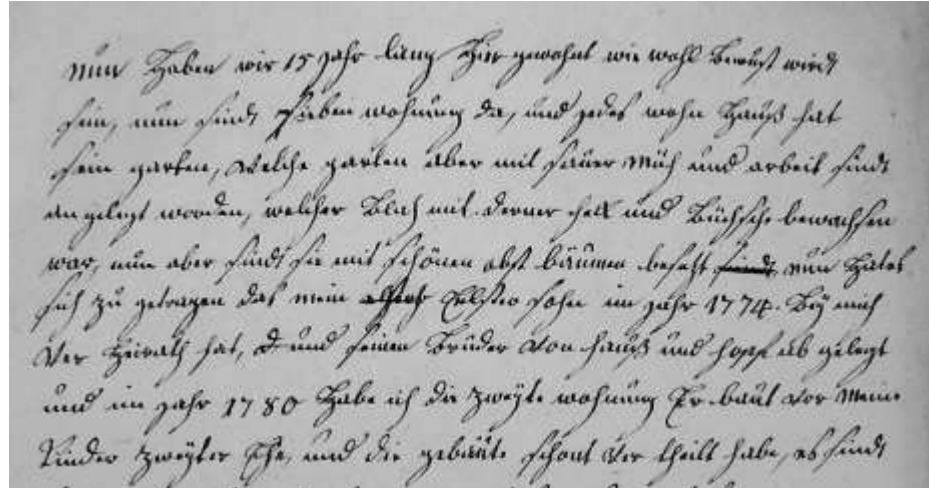 nun Haben wir 15 Jahr lang Hir gewohnt wie wohl bewust wird
sein, nun sind sieben wohnung da, und jedes wohn Hauß hat
sein garten, Welche garten aber mit sauer Müh und arbeit sind
angelegt worden, welcher mit und Büsche bewachsen
war, nun aber sind sie mit schönen obst bäumen besetzt nun Hates
sich zu getragen das mein Eelster sohn im jahr 1774. Bey mich
Ver Heirath hat, und seinen Bruder Von hauß und hoff ab gelegt
und im jahr 1780 Habe ich die zweyte wohnung Er baut vor Meine
Kinder zweyter Ehe, und die gebäute schont Ver theilt habe, es sind